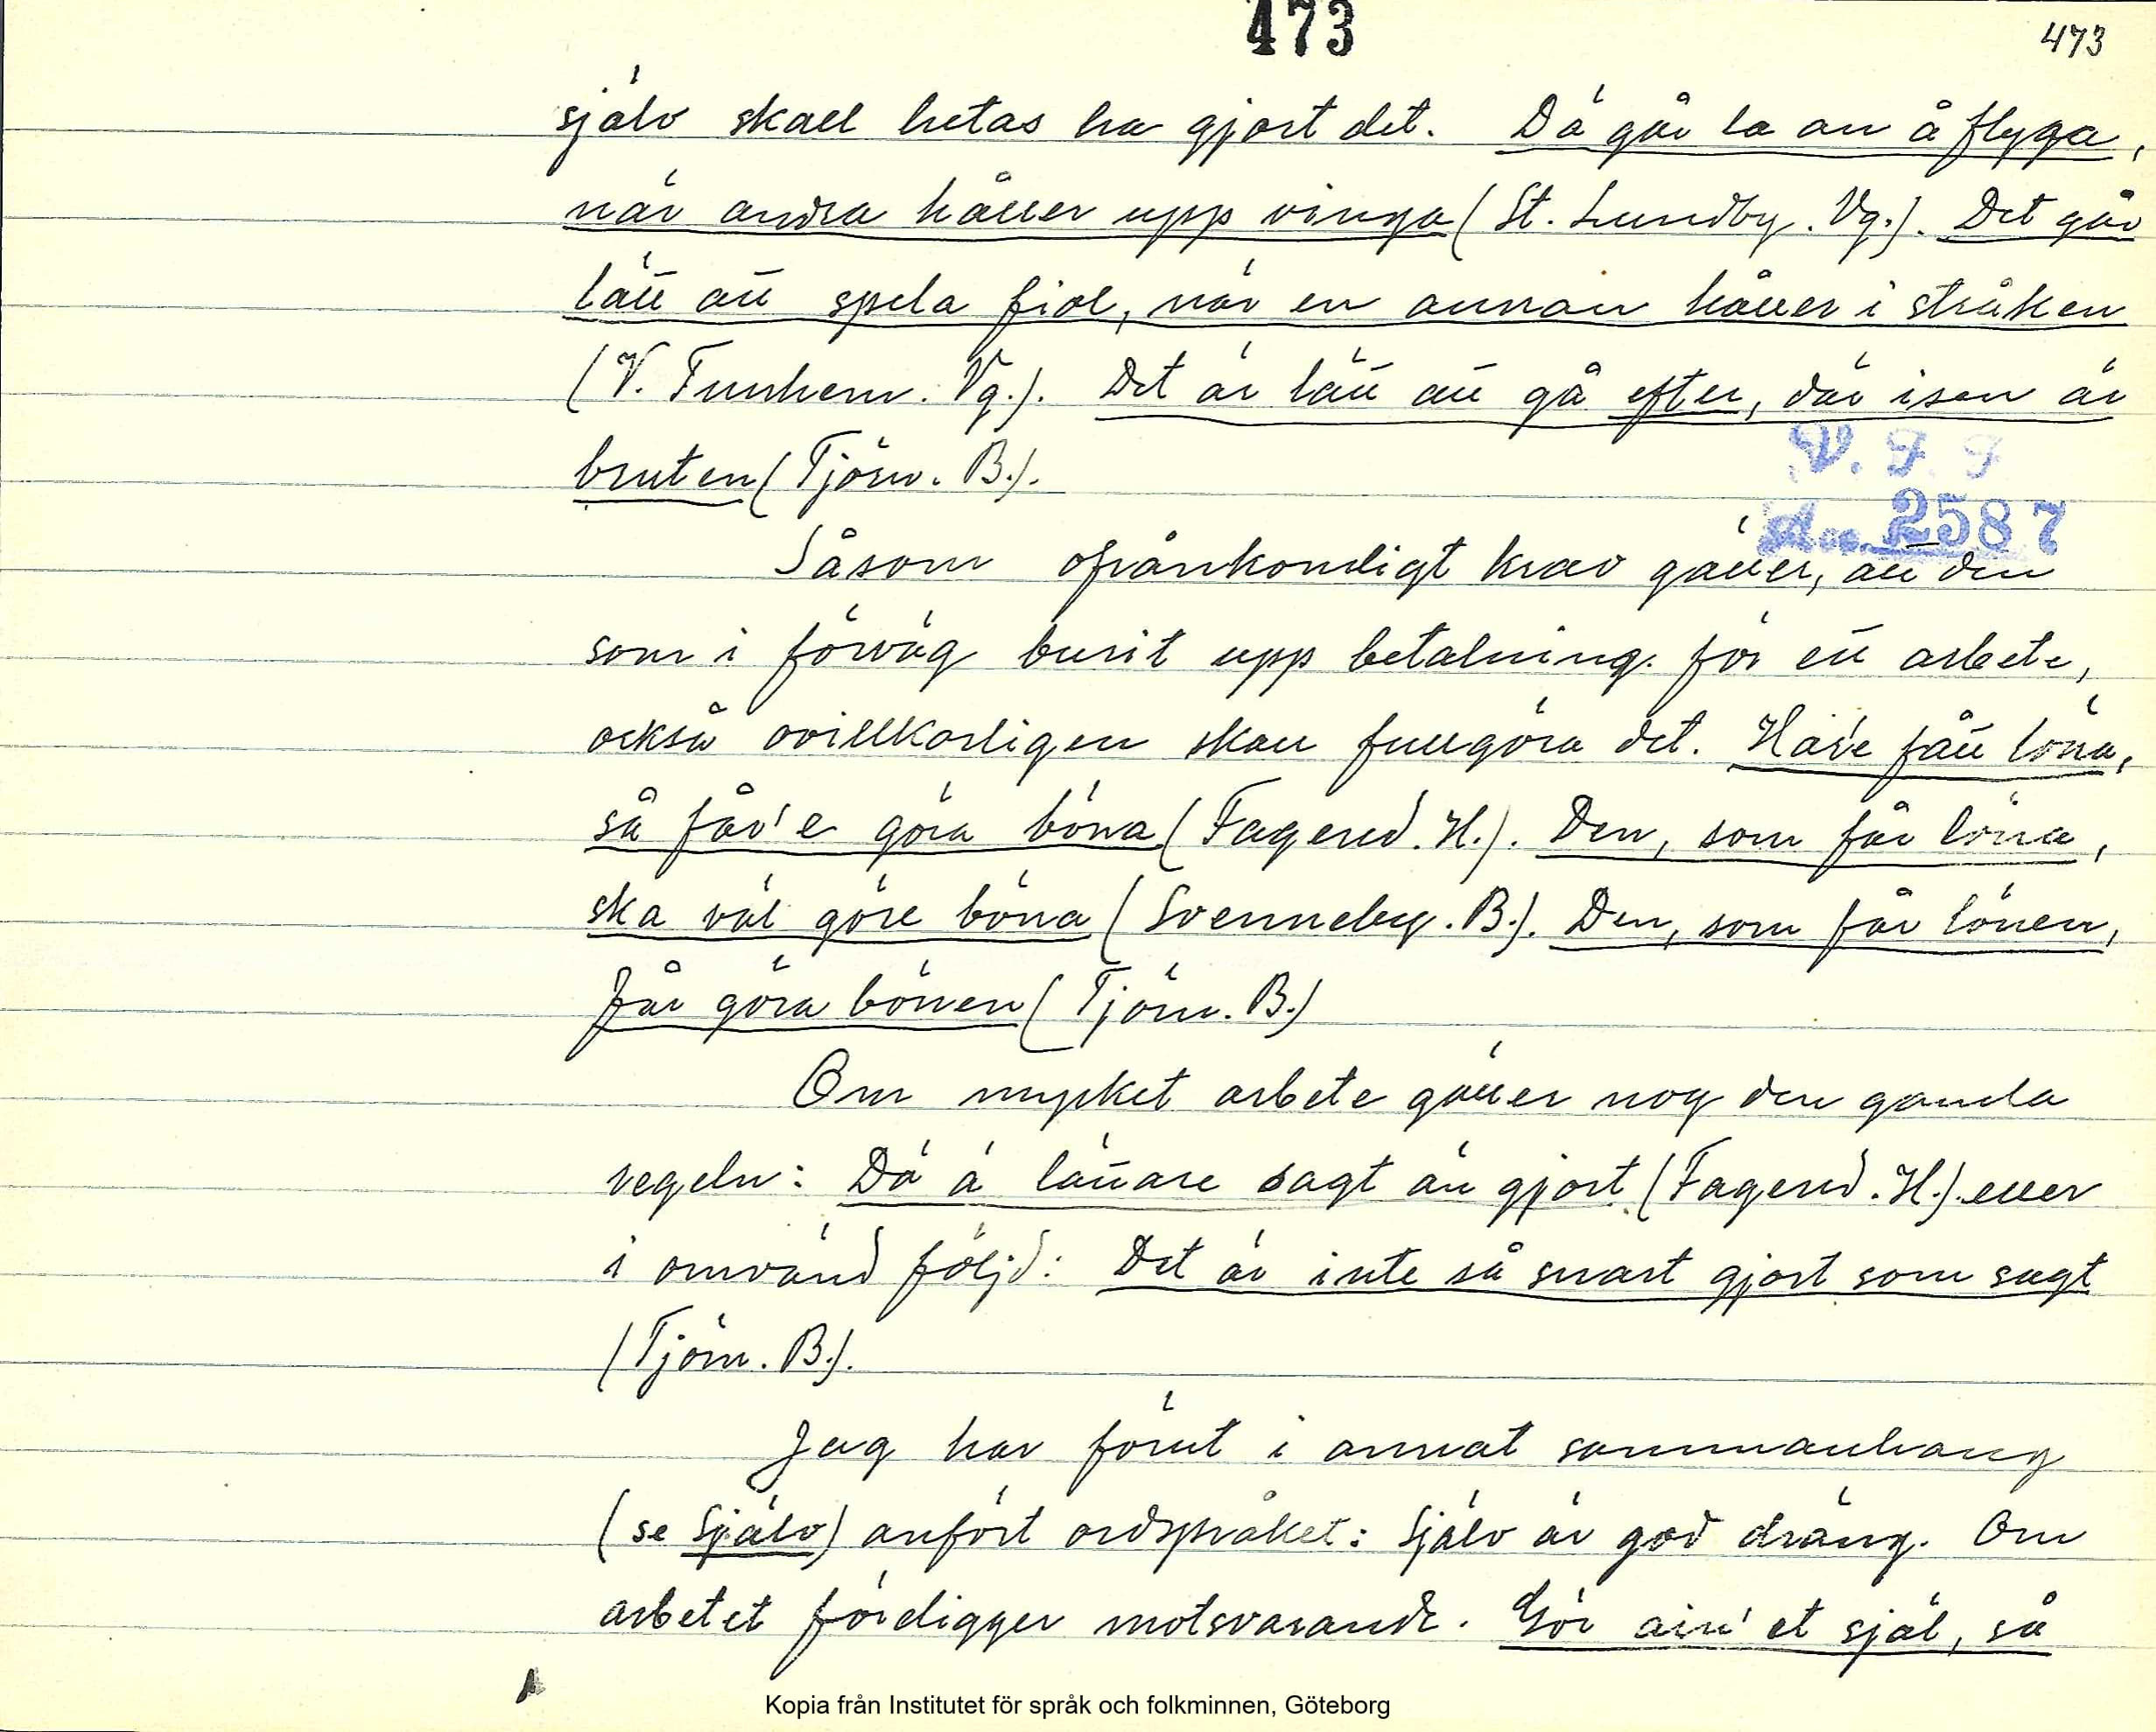 473
473
själv skall hetas ha gjort det. Dä går la an å flyga,
när andra håller upp vinga (St. Lundby. Vg.). Det går
lätt att spela fiol, när en annan håller i stråken
(V. Tunhem. Vg.). Det är lätt att gå efter, där isen är
bruten (Tjörn. B.).
V. F. F
Acc. 2587
Såsom ofrånkomligt krav gäller, att den
som i förväg burit upp betalning för ett arbete,
också ovillkorligen skall fullgöra det. Har'e fått löna,
så får'e göra böna (Fagered. H.). Den, som får löna,
ska väl göre böna (Svenneby. B.). Den, som får lönen,
får göra bönen (Tjörn. B.)
Om mycket arbete gäller nog den gamla
regeln: Dä ä lättare sagt än gjort (Fagered. H.) eller
i omvänd följd: Det är inte så snart gjort som sagt
(Tjörn. B.).
Jag har förut i annat sammanhang
(se Själv) anfört ordspråket: Själv är god dräng. Om
arbetet föreligger motsvarande. Gör ain' et själ, så
Kopia från Institutet för språk och folkminnen, Göteborg